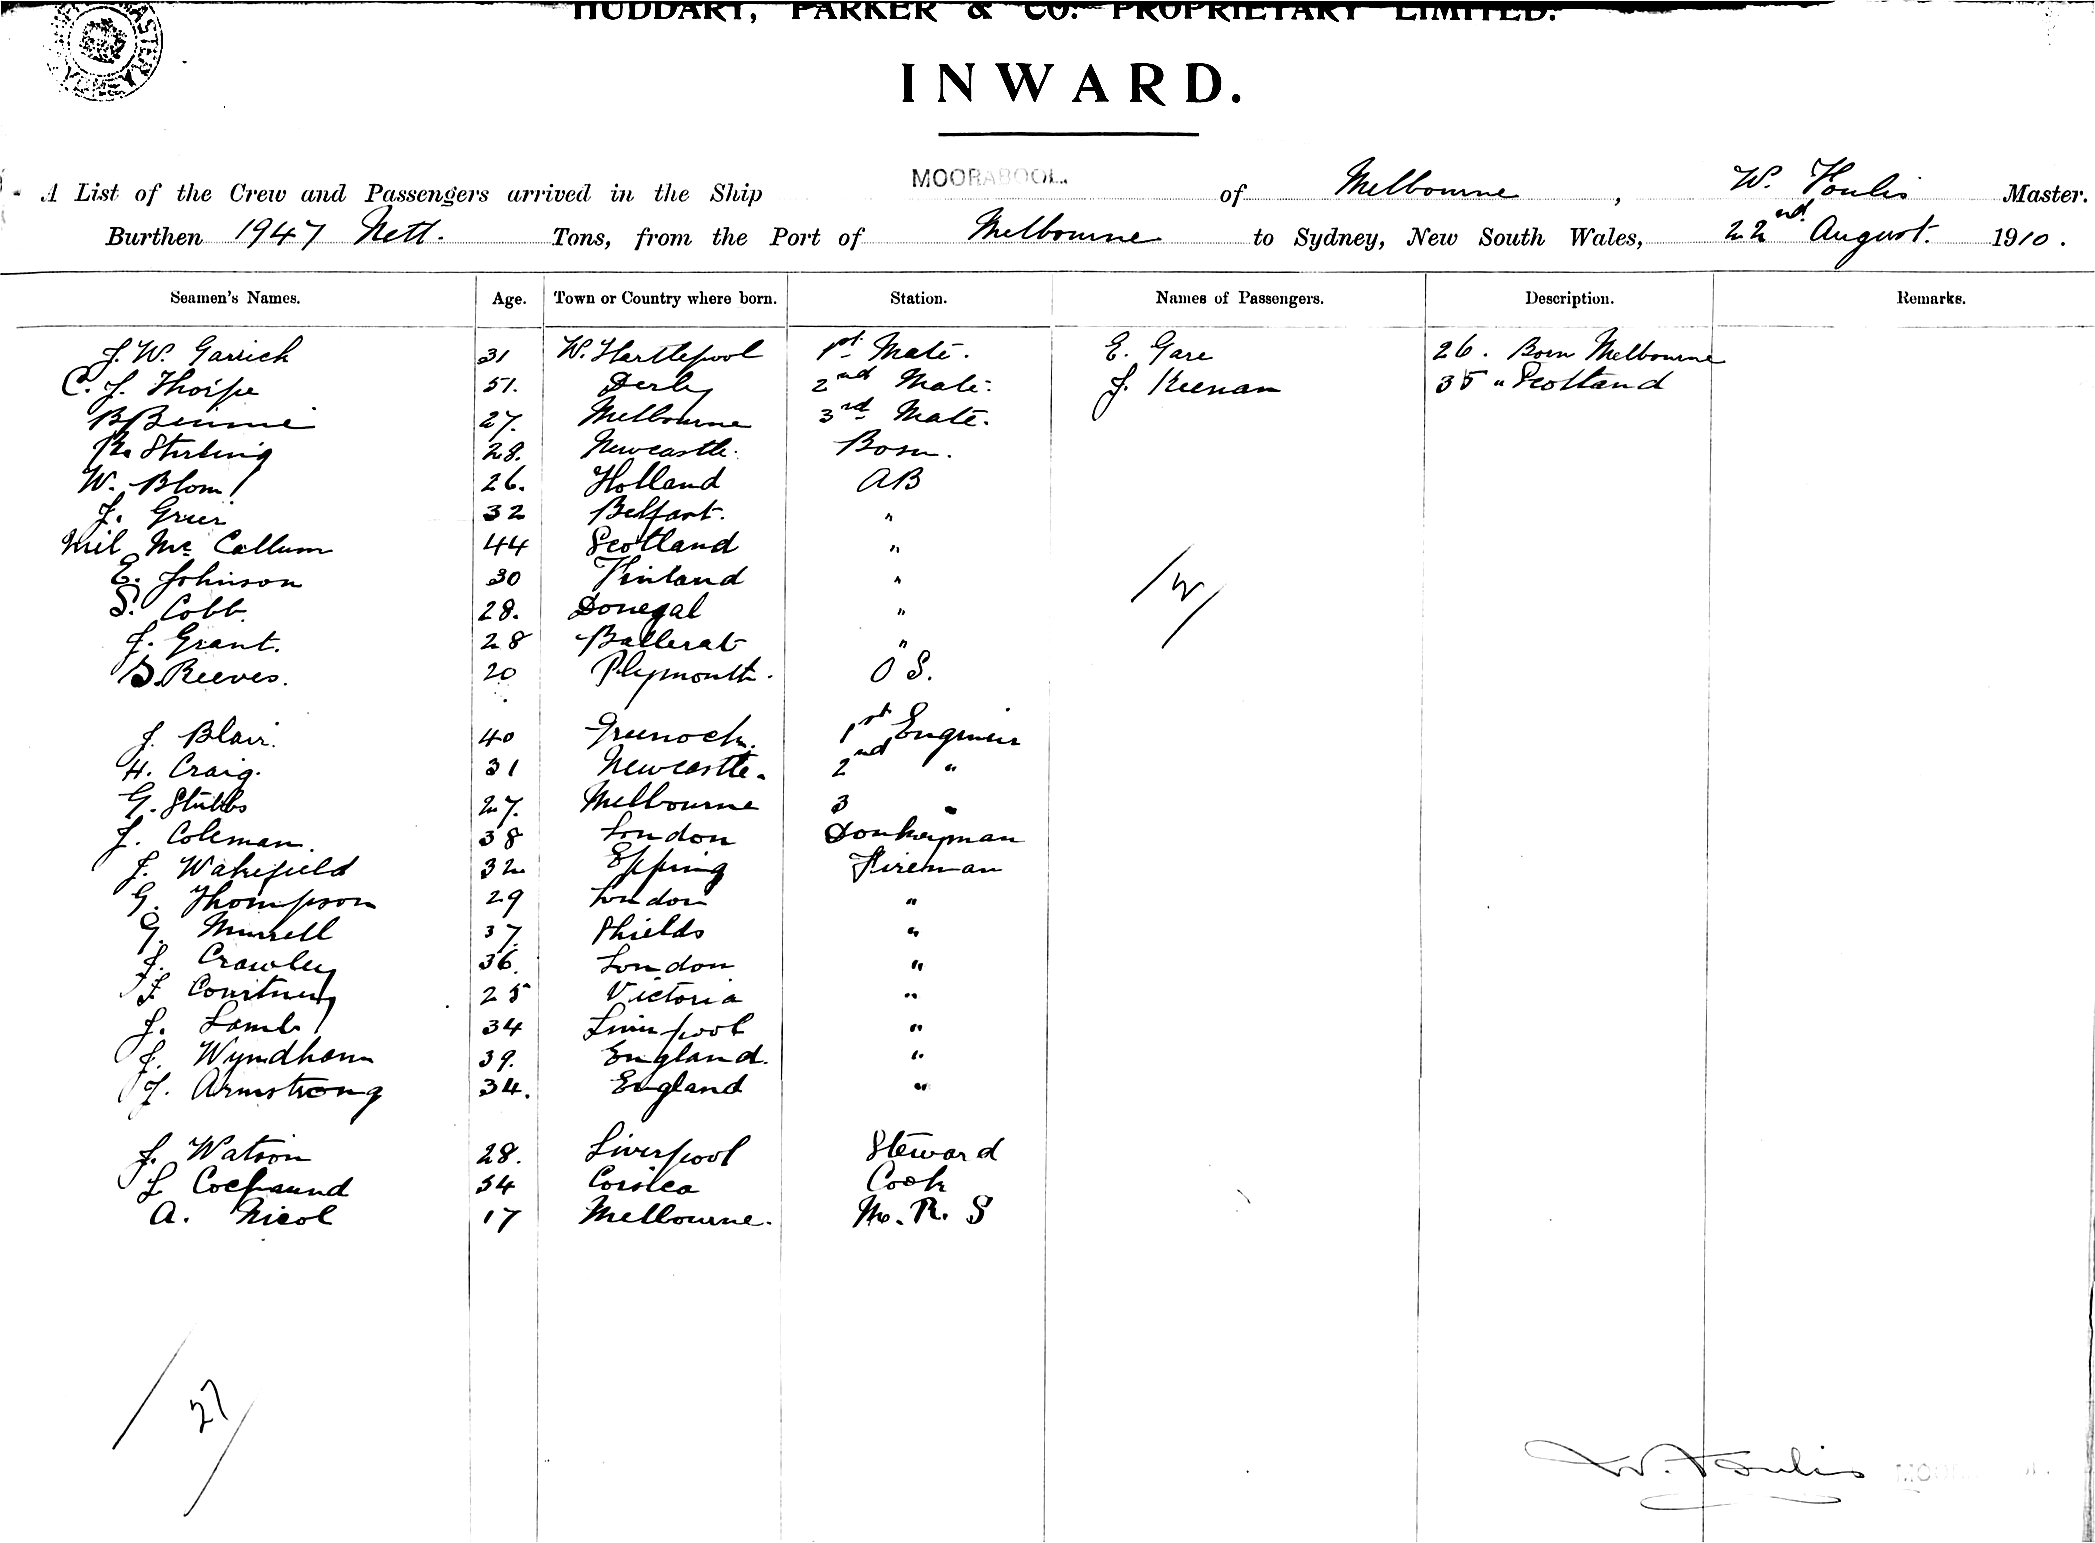 HUDDART, PARKER & CO. PROPRIETARY LIMITED.
INWARD.
A List of the Crew and Passengers arrived in the Ship MOORABOOL. of Melbourne, W. Foulis Master.
Burthen 1947 Nett. Tons, from the Port of Melbourne to Sydney, New South Wales, 22nd August. 1910.
Seamen's Names. Age. Town or Country where born. Station. Names of Passengers. Description. Remarks.
J. W. Garrick 31 W. Hartlepool 1st Mate. E. Gare 26. Born Melbourne
C. J. Thorpe 51. Derby 2nd Mate. J. Keenan 35 " Scotland
B Binnie 27. Melbourne 3rd Mate.
R. Stirling 28. Newcastle. Bosn.
W. Blom 26. Holland AB
J. Grier 32 Belfast. "
Neil Mc Callum 44 Scotland "
E. Johnson 30 Finland "
S. Cobb. 28. Donegal "
J. Grant. 28 Ballerat "
G. Reeves. 20 Plymouth. O S.
J. Blair. 40 Greenock. 1st Engineer
H. Craig. 31 Newcastle. 2nd "
G. Stubbs 27. Melbourne 3 "
J. Coleman. 38 London Donkeyman
J. Wakefield 32 Epping Fireman
G. Thompson 29 London "
G. Murrell 37 Shields "
J. Crawley 36. London "
J. Courtney 25 Victoria "
J. Lamb 34 Liverpool "
J. Wyndham 39. England. "
J. Armstrong 34. England "
J. Watson 28. Liverpool Steward
L 34 Corsica Cook
A. Nicol 17 Melbourne. M. R. S
27
W. Foulis